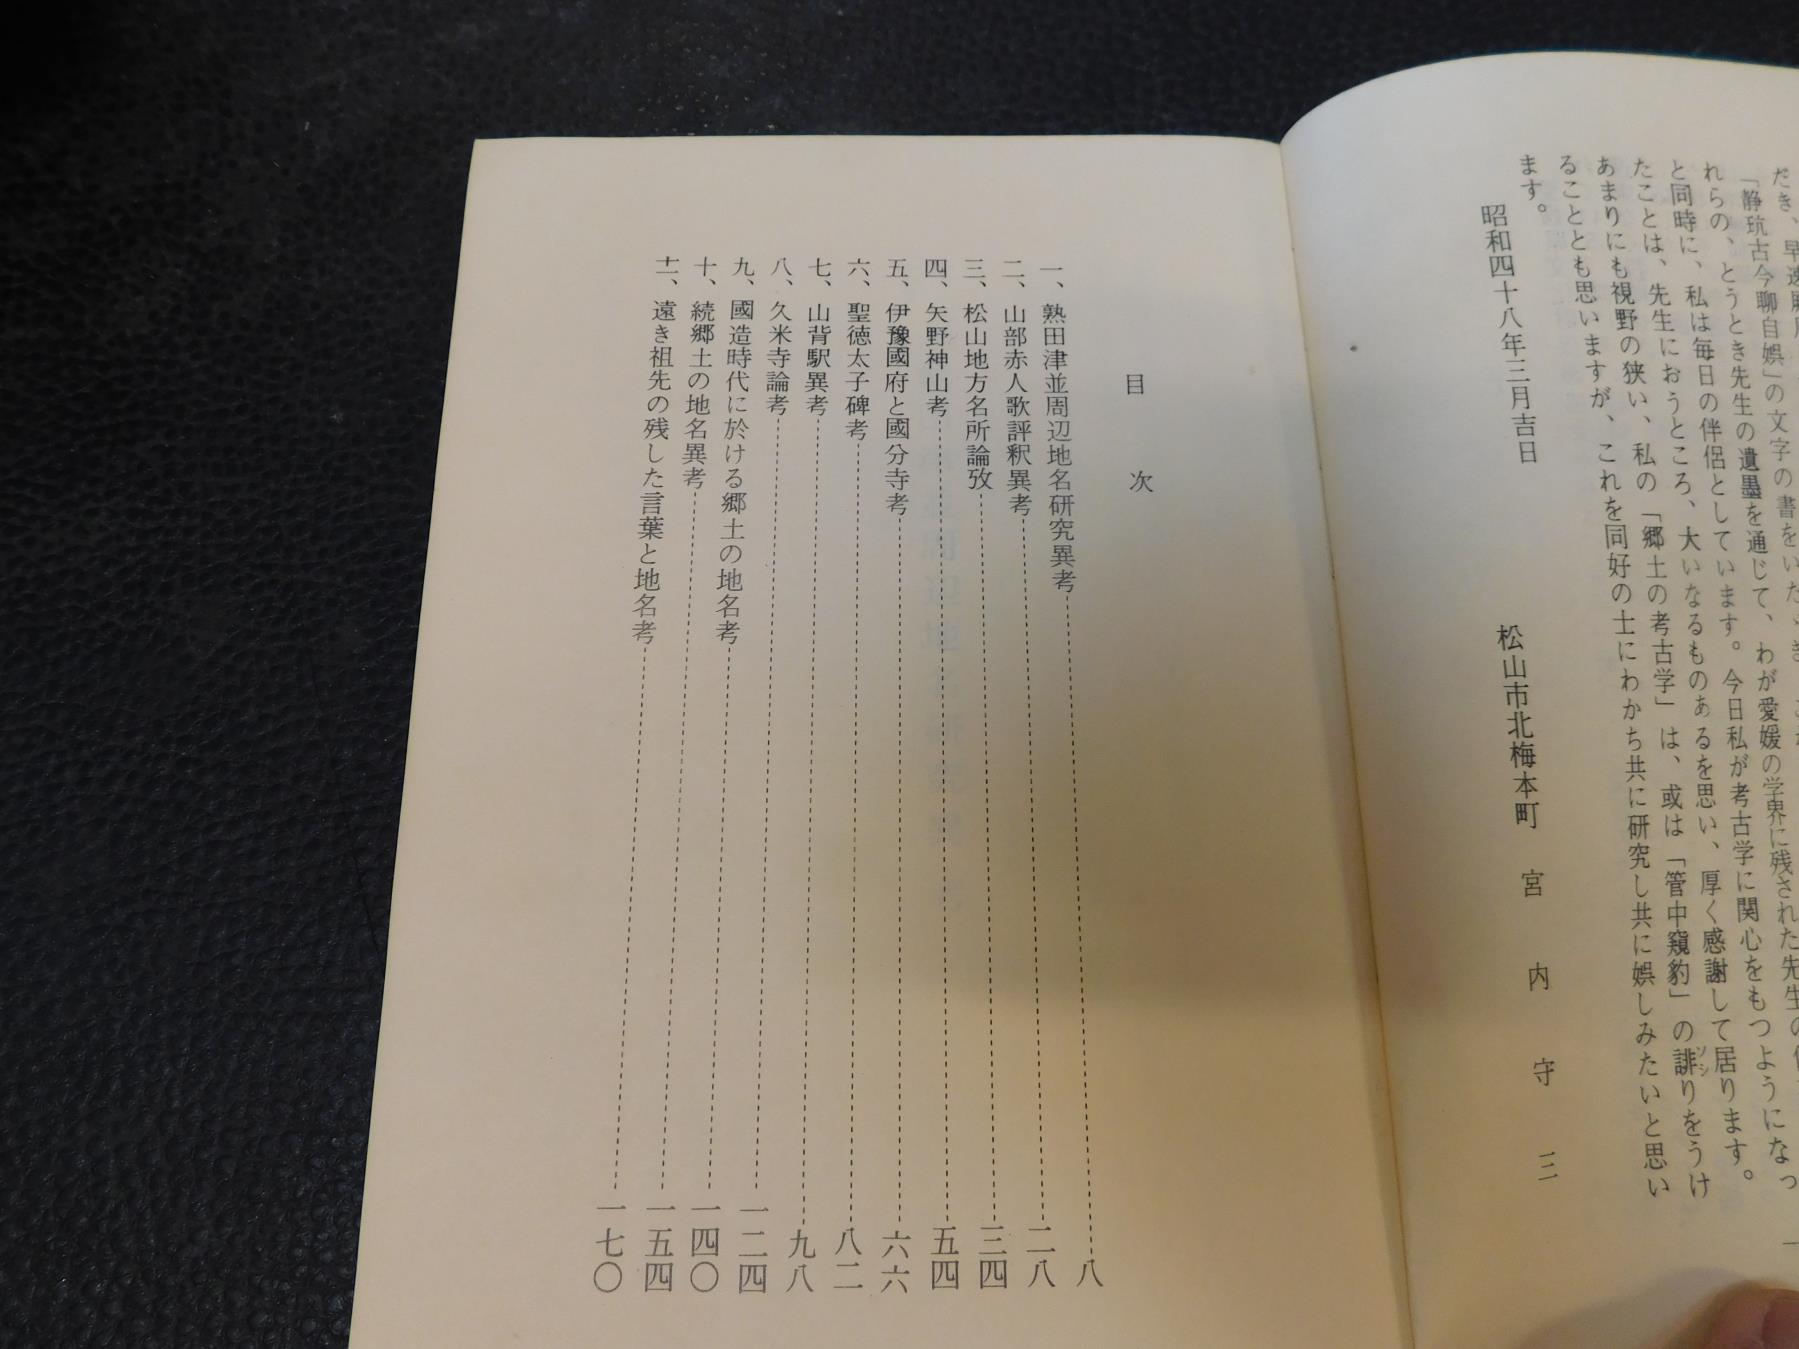 だき、早速
「静玩古今聊自娯」の文字の書をいた
れらの、とうとき先生の遺墨を通じて、わが愛媛の学界に残された先生の
と同時に、私は毎日の伴侶としています。今日私が考古学に関心をもつようになっ
たことは、先生におうところ、大いなるものあるを思い、厚く感謝して居ります。
あまりにも視野の狭い、私の「郷土の考古学」は、或は「管中窺豹」の誹りをうけ
ソシ
ることとも思いますが、これを同好の士にわかち共に研究し共に娯しみたいと思い
ます。
昭和四十八年三月吉日
松山市北梅本町 宮内守三
目 次
一、熟田津並周辺地名研究異考 八
二、山部赤人歌評釈異考 二八
三、松山地方名所論攷 三四
四、矢野神山考 五四
五、伊豫國府と國分寺考 六六
六、聖徳太子碑考 八二
七、山背駅異考 九八
八、久米寺論考 一二四
九、國造時代に於ける郷土の地名考 一四〇
十、続郷土の地名異考 一五四
十一、遠き祖先の残した言葉と地名考 一七〇